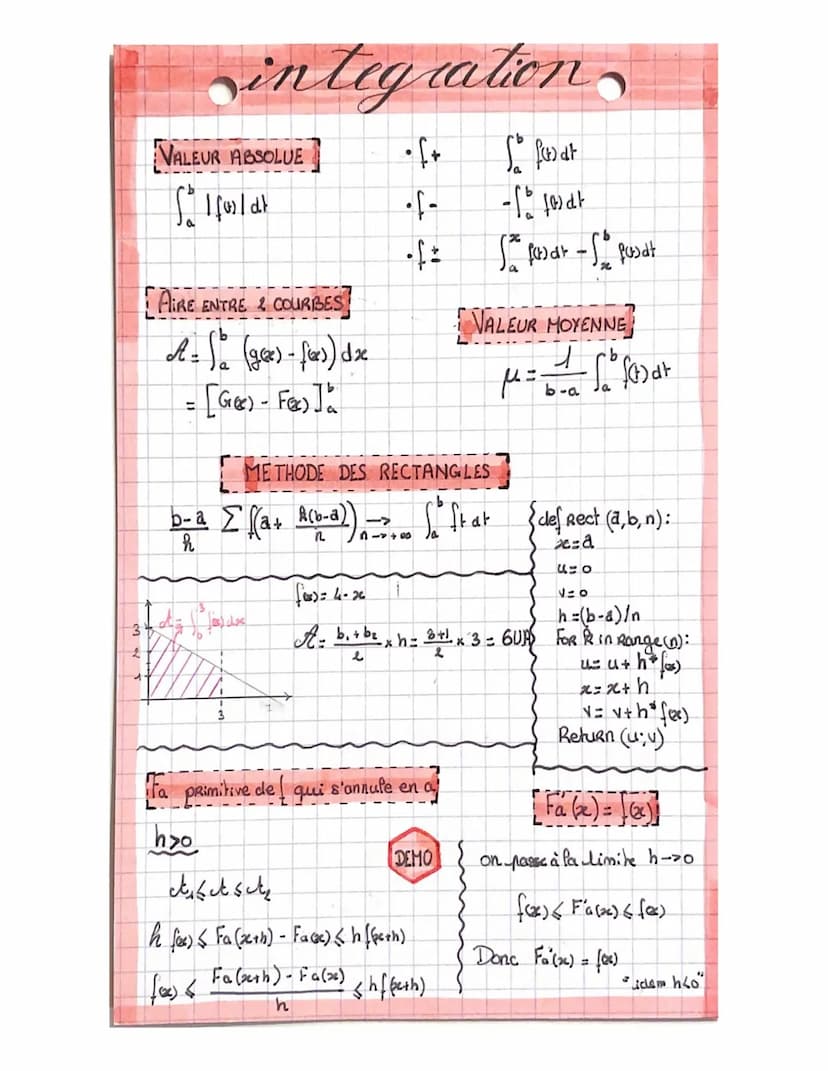 integration
VALEUR ABSOLUE
∫ₐᵇ |f(t)| dt
• f+ ∫ₐᵇ f(t) dt
• f- -∫ₐᵇ f(t) dt
• f± ∫ₐˣ f(t) dt - ∫ₓᵇ f(t) dt
AIRE ENTRE 2 COURBES
A = ∫ₐᵇ (g(x) - f(x)) dx
= [G(x) - F(x)]ₐᵇ
VALEUR MOYENNE
μ = 1/(b-a) ∫ₐᵇ f(t) dt
METHODE DES RECTANGLES
(b-a)/n Σ f(a + k(b-a)/n) → n→+∞ ∫ₐᵇ ft dt
def Rect (a, b, n) :
x=a
u=0
v=0
h=(b-a)/n
FOR k in Range(n):
u= u+ h*f(x)
x= x+ h
v= v+h*f(x)
Return (u;v)
f(x) = 4-x
A = (b₁+b₂)/2 × h = (3+1)/2 × 3 = 6UA
A = ∫₀³ f(x) dx
3
2
1
3
Fa primitive de f qui s'annule en a
h>0
DEMO
A₁ ≤ A ≤ A₂
h f(x) ≤ Fa(x+h) - Fa(x) ≤ h f(x+h)
f(x) ≤ (Fa(x+h) - Fa(x))/h ≤ h f(x+h)
Fa'(x) = f(x)
on passe à la limite h→0
f(x) ≤ F'a(x) ≤ f(x)
Donc Fa'(x) = f(x)
"idem h<0"